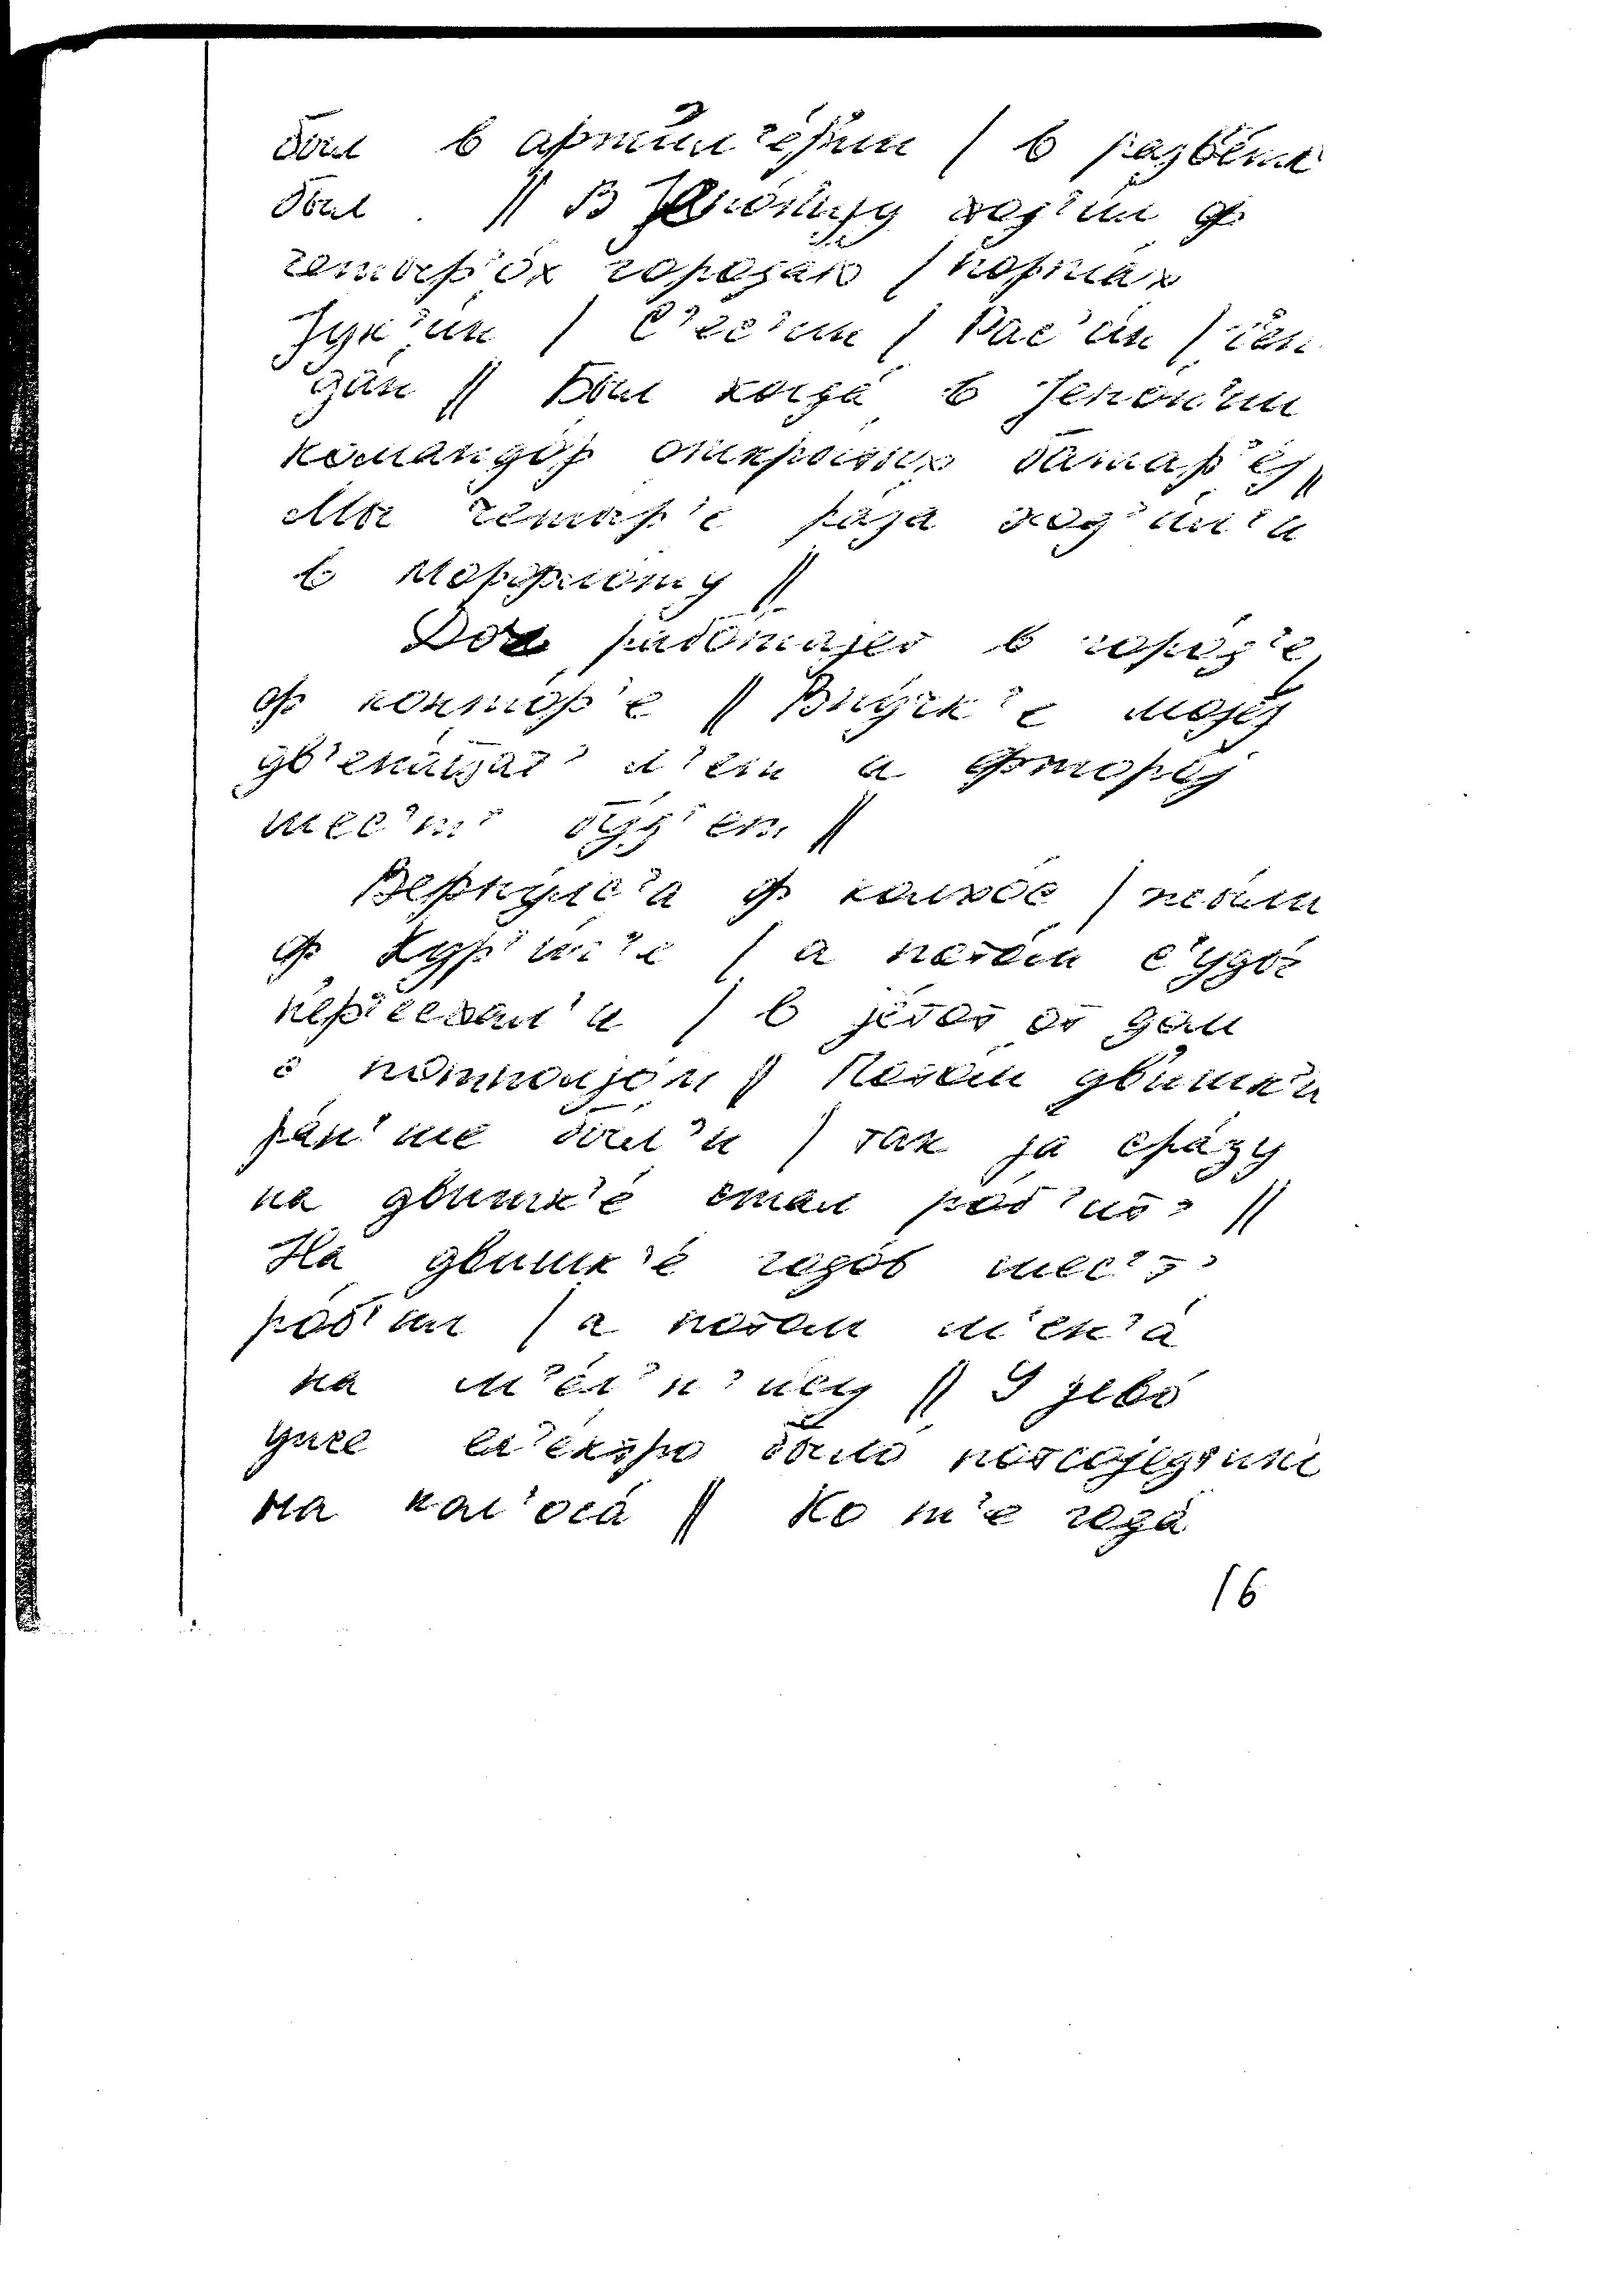 был в артил'ер'ии / в развётк
был . // В Јепо́нију ход'и́л ф
четыр'о́х города́х / порта́х
Јук'и́н / С'ес'ин / Рас'и́н / Ген
за́н // Был когда́ в Јепо́н'ии
командо́р откры́тых батар'е́ј //
Мы четыр'е ра́за ход'и́л'и
в морфло́ту //
До́ч рабо́тајет в горо́д'е,
ф конто́р'е // Вну́чк'е моје́ј
дв'ена́цат' л'ет а фторо́ј
шес'т' бу́д'ет //
Верну́лс'а ф колхо́с / пото́м
ф Кур'и́лс'е / а пото́м с'уды́
пер'еехал'и / в је́тот от дом
с потпол[ј]ом // Пото́м двишк'и
ра́н'ше был'и / так ја сра́зу
на двишк'е́ стал ро́б'ит' //
На двишк'е́ годо́в шес'т'
ро́б'ил / а потом м'ен'а́
на м'е́л'н'ицу // У јево́
уже ел'е́ктро было́ потсојед'ин
на кол'оса́ // Ко т'е года́
16